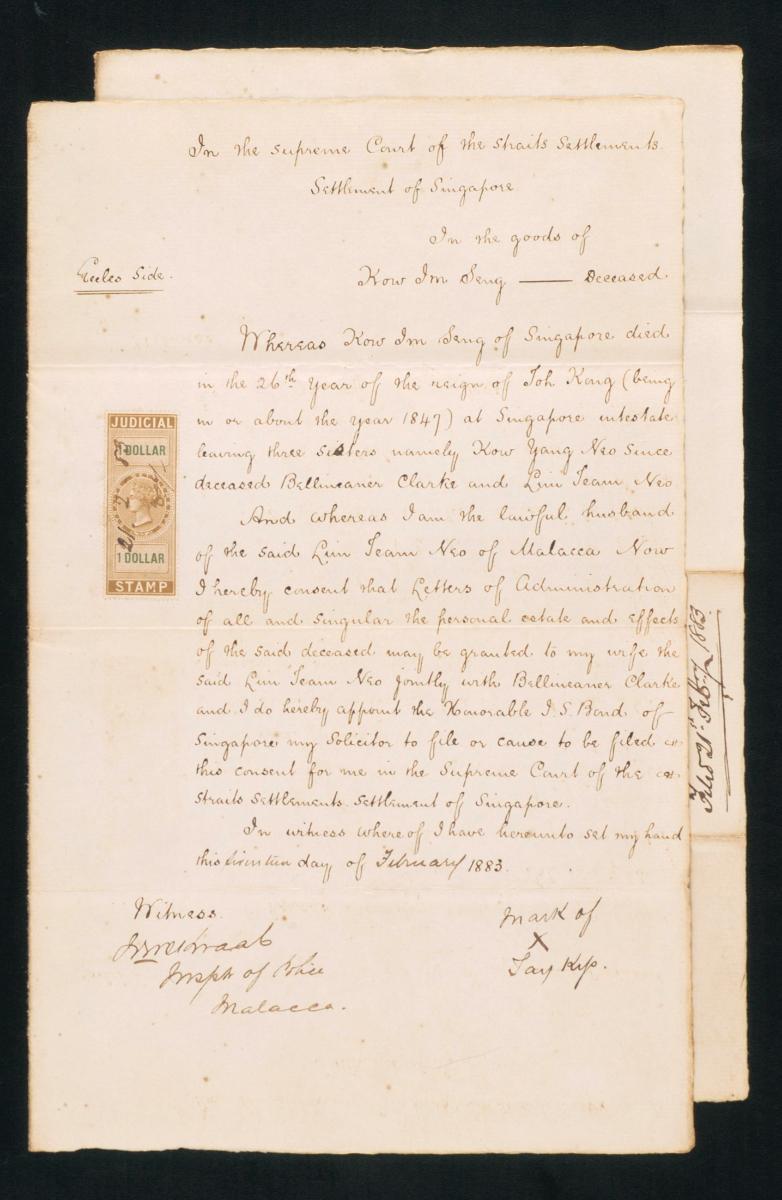 In the Supreme Court of the Straits Settlements.
Settlement of Singapore
In the goods of
Eccles Side.
Kow Im Seng — Deceased
Whereas Kow Im Seng of Singapore died
in the 26th Year of the reign of Toh Kong (being
in or about the year 1847) at Singapore intestate
leaving three sisters namely Kow Yang Neo since
deceased Bellineaner Clarke and Lim Team Neo
And whereas I am the lawful husband
of the said Lim Team Neo of Malacca Now
I hereby consent that Letters of Administration
of all and singular the personal estate and effects
of the said deceased may be granted to my wife the
said Lim Team Neo jointly with Bellineaner Clarke
and I do hereby appoint the Honorable I. S. Bond of
Singapore my Solicitor to file or cause to be filed
this consent for me in the Supreme Court of the
Straits Settlements. Settlement of Singapore.
In witness whereof I have hereunto set my hand
this day of February 1883.
Witness.
Inspr of Police
Malacca.
Mark of
X
Tay Kip.
JUDICIAL
1 DOLLAR
1 DOLLAR
STAMP
Filed 21st Feb-y 1883.